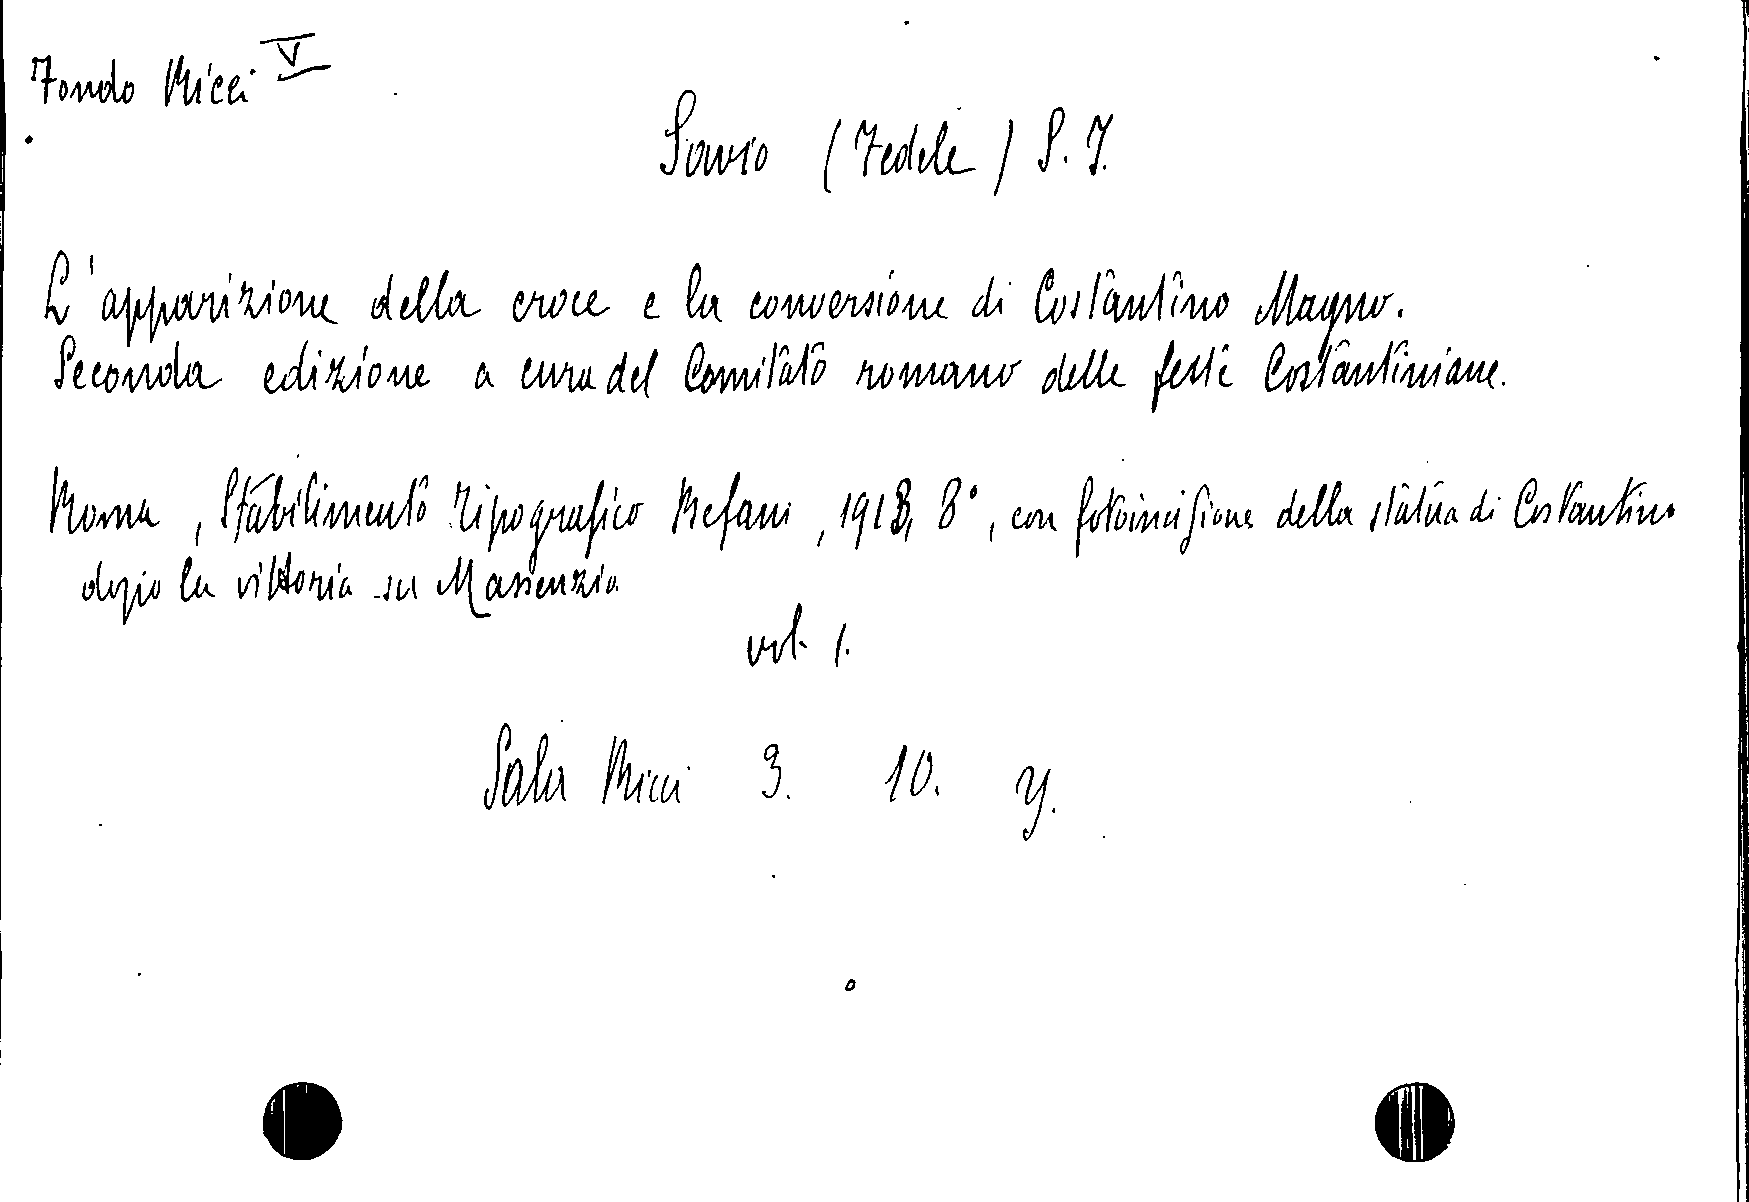 Fondo Ricci V
Savio (Fedele) S. J.
L'apparizione della croce e la conversione di Costantino Magno.
Seconda edizione a cura del Comitato romano delle feste Costantiniane.
Roma, Stabilimento Tipografico Befani, 1913, 8°, con fotoincisione della statua di Costantino
dopo la vittoria su Massenzio
vol. 1.
Sala Ricci 3. 10. y.